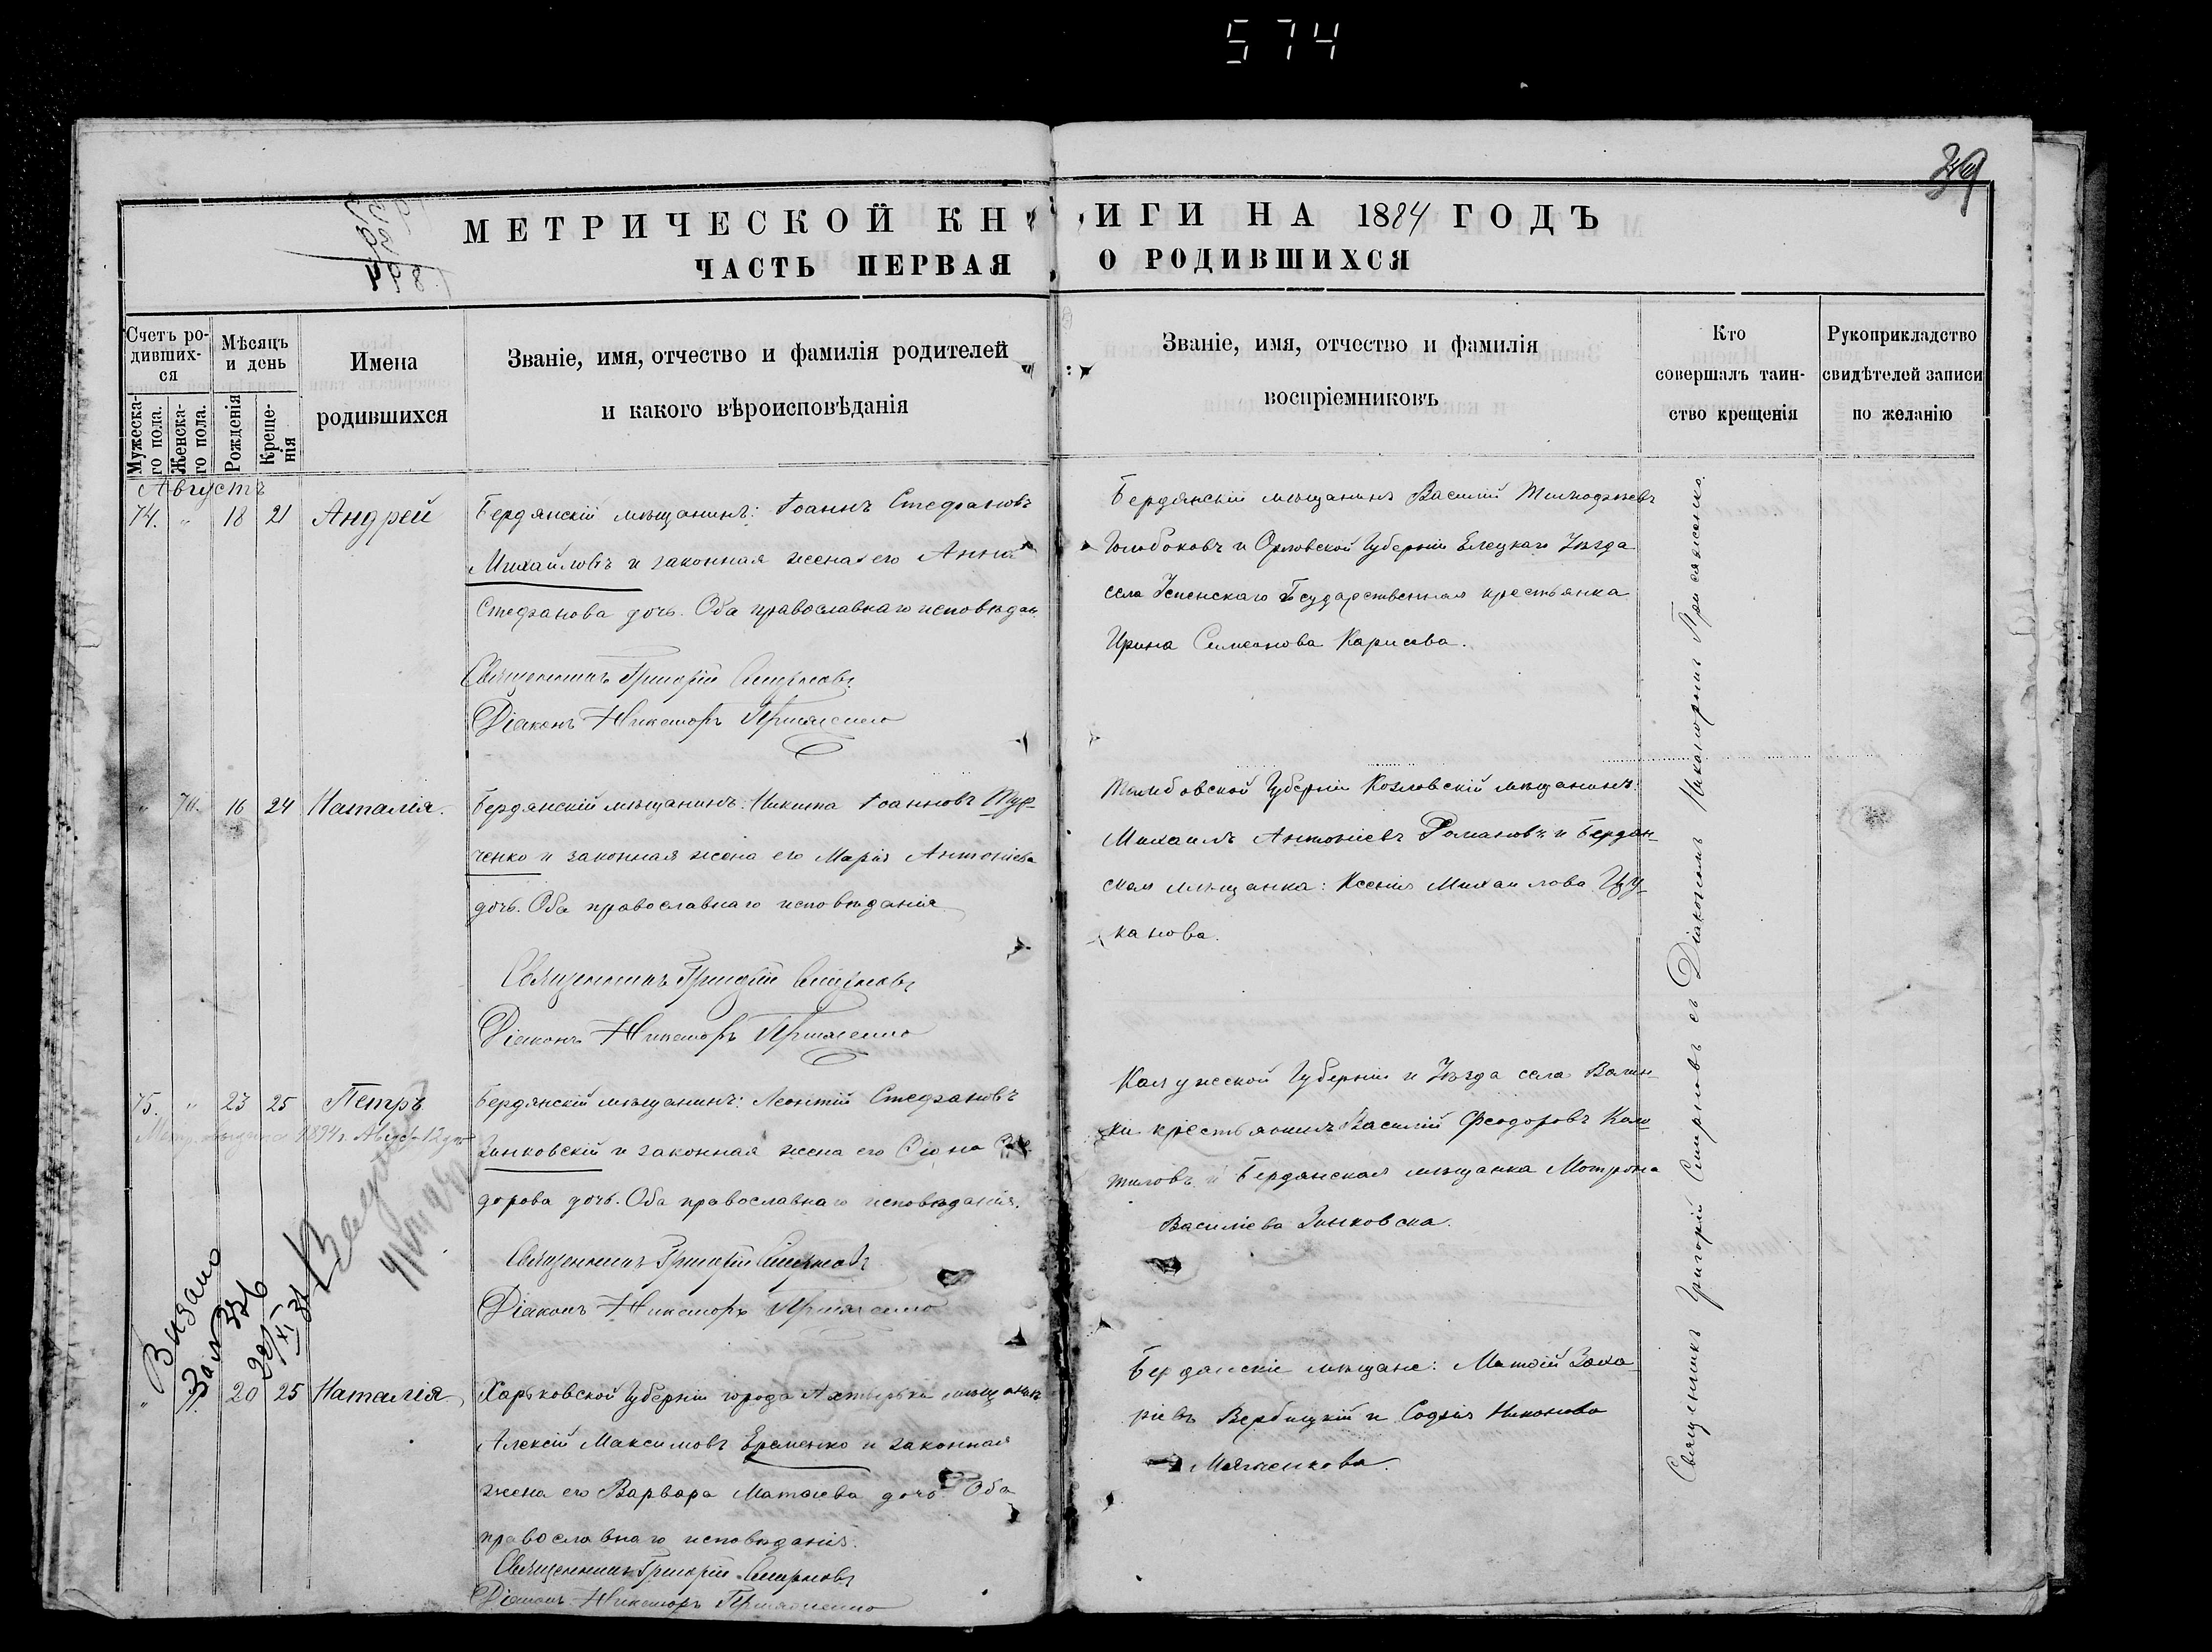 574
39
МЕТРИЧЕСКОЙ КНИГИ НА 1884 ГОДЪ
ЧАСТЬ ПЕРВАЯ О РОДИВШИХСЯ
Счетъ родившихся
Мужескаго пола.
Женскаго пола.
Мѣсяцъ и день
Рожденія
Крещенія
Имена родившихся
Званіе, имя, отчество и фамилія родителей
и какого вѣроисповѣданія
Званіе, имя, отчество и фамилія
воспріемниковъ
Кто
совершалъ таин-
ство крещенія
Рукоприкладство
свидѣтелей записи
по желанію
Августъ
74. " 18 21 Андрей
Бердянскій мѣщанинъ: Іоаннъ Стефановъ
Михайловъ и законная жена его Анна
Стефанова дочь. Оба православнаго исповѣдан.
Священникъ Григорій Смирновъ
Діаконъ Никаноръ Присяженко
Бердянскій мѣщанинъ Василій
и Орловской Губерніи Елецкаго Уѣзда
села Успенскаго Государственная крестьянка
Ирина Симеонова
" 70. 16 24 Наталія.
Бердянскій мѣщанинъ: Никита Іоанновъ
ченко и законная жена его Марія Антоніева
дочь. Оба православнаго исповѣданія
Священникъ Григорій Смирновъ
Діаконъ Никаноръ Присяженко
Тамбовской Губерніи Козловскій мѣщанинъ:
Михаилъ Антоніевъ Романовъ и Бердян-
ская мѣщанка: Ксенія Михаилова Цу-
канова.
75. " 23 25 Петръ
1894 г. Август 12 дня
Бердянскій мѣщанинъ: Леонтій Стефановъ
Зинковскій и законная жена его
дорова дочь. Оба православнаго исповѣданія.
Священникъ Григорій Смирновъ
Діаконъ Никаноръ Присяженко
Калужской Губерніи и Уѣзда села
крестьянинъ Василій Феодоровъ
и Бердянская мѣщанка Мотрона
Василіева Зинковска.
Видано
22/XI 31
" 20 25 Наталія.
Харьковской Губерніи города Ахтырки мѣщанинъ
Алексій Максимовъ Еременко и законная
жена его Варвара Матѳіева дочь. Оба
православнаго исповѣданія.
Священникъ Григорій Смирновъ
Діаконъ Никаноръ Присяженко
Бердянскіе мѣщане: Матѳій Заха-
ріевъ Вербицкій и Софія Никонова
Священникъ Григорій Смирновъ съ Діакономъ Никаноромъ Присяженко.